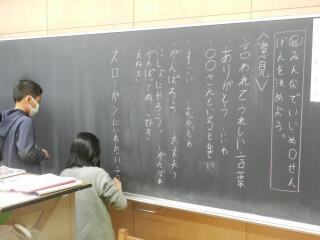 みんなでいじめ〇せん
げんを決めよう。
＜意見＞
言われてうれしい言葉
ありがとう　いいね
〇〇さんといると楽しい
すごい
がんばろう　大丈夫？
いっしょにやろう。
がんばってね　好き
スローガンにいれたい